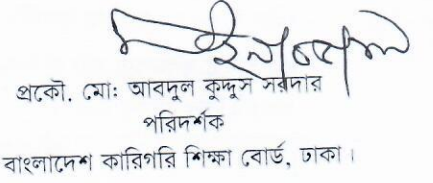 প্রকৌ. মোঃ আবদুল কুদ্দুস সরদার
পরিদর্শক
বাংলাদেশ কারিগরি শিক্ষা বোর্ড, ঢাকা।